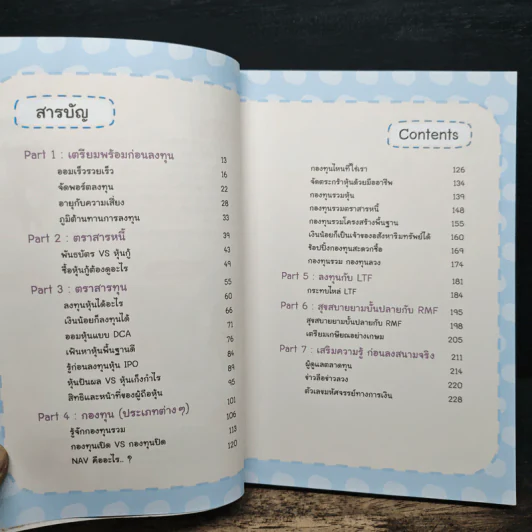 สารบัญ
Part 1 : เตรียมพร้อมก่อนลงทุน 13
ออมเร็วรวยเร็ว 16
จัดพอร์ตลงทุน 22
อายุกับความเสี่ยง 28
ภูมิต้านทานการลงทุน 33
Part 2 : ตราสารหนี้ 39
พันธบัตร VS หุ้นกู้ 43
ซื้อหุ้นกู้ต้องดูอะไร 49
Part 3 : ตราสารทุน 55
ลงทุนหุ้นได้อะไร 60
เงินน้อยก็ลงทุนได้ 66
ออมหุ้นแบบ DCA 71
เฟ้นหาหุ้นพื้นฐานดี 76
รู้ก่อนลงทุนหุ้น IPO 84
หุ้นปันผล VS หุ้นเก็งกำไร 89
สิทธิและหน้าที่ของผู้ถือหุ้น 95
Part 4 : กองทุน (ประเภทต่าง ๆ) 101
รู้จักกองทุนรวม 106
กองทุนเปิด VS กองทุนปิด 113
NAV คืออะไร.. ? 120
Contents
กองทุนไหนที่ใช่เรา 126
จัดตระกร้าหุ้นด้วยมืออาชีพ 134
กองทุนรวมหุ้น 139
กองทุนรวมตราสารหนี้ 148
กองทุนรวมโครงสร้างพื้นฐาน 155
เงินน้อยก็เป็นเจ้าของอสังหาริมทรัพย์ได้ 160
ช้อปปิ้งกองทุนสะดวกซื้อ 169
กองทุนรวม กองทุนลวง 174
Part 5 : ลงทุนกับ LTF 181
กระทบไหล่ LTF 184
Part 6 : สุขสบายยามบั้นปลายกับ RMF 195
สุขสบายยามบั้นปลายกับ RMF 198
เตรียมเกษียณอย่างเกษม 205
Part 7 : เสริมความรู้ ก่อนลงสนามจริง 211
ผู้ดูแลตลาดทุน 214
ข่าวลือข่าวลวง 220
ตัวเลขมหัศจรรย์ทางการเงิน 228